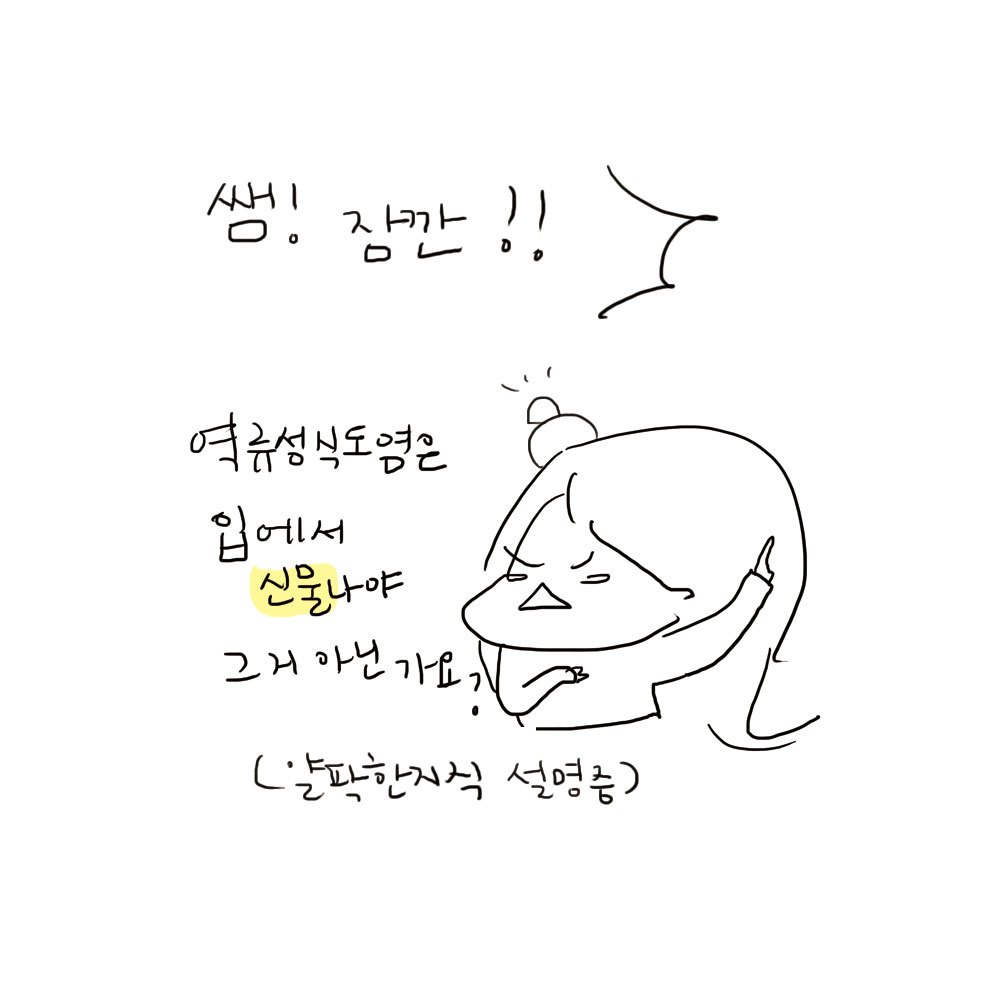 쌤! 잠깐!!
역류성식도염은
입에서
신물나야
그거 아닌가요?
(얄팍한지식 설명중)